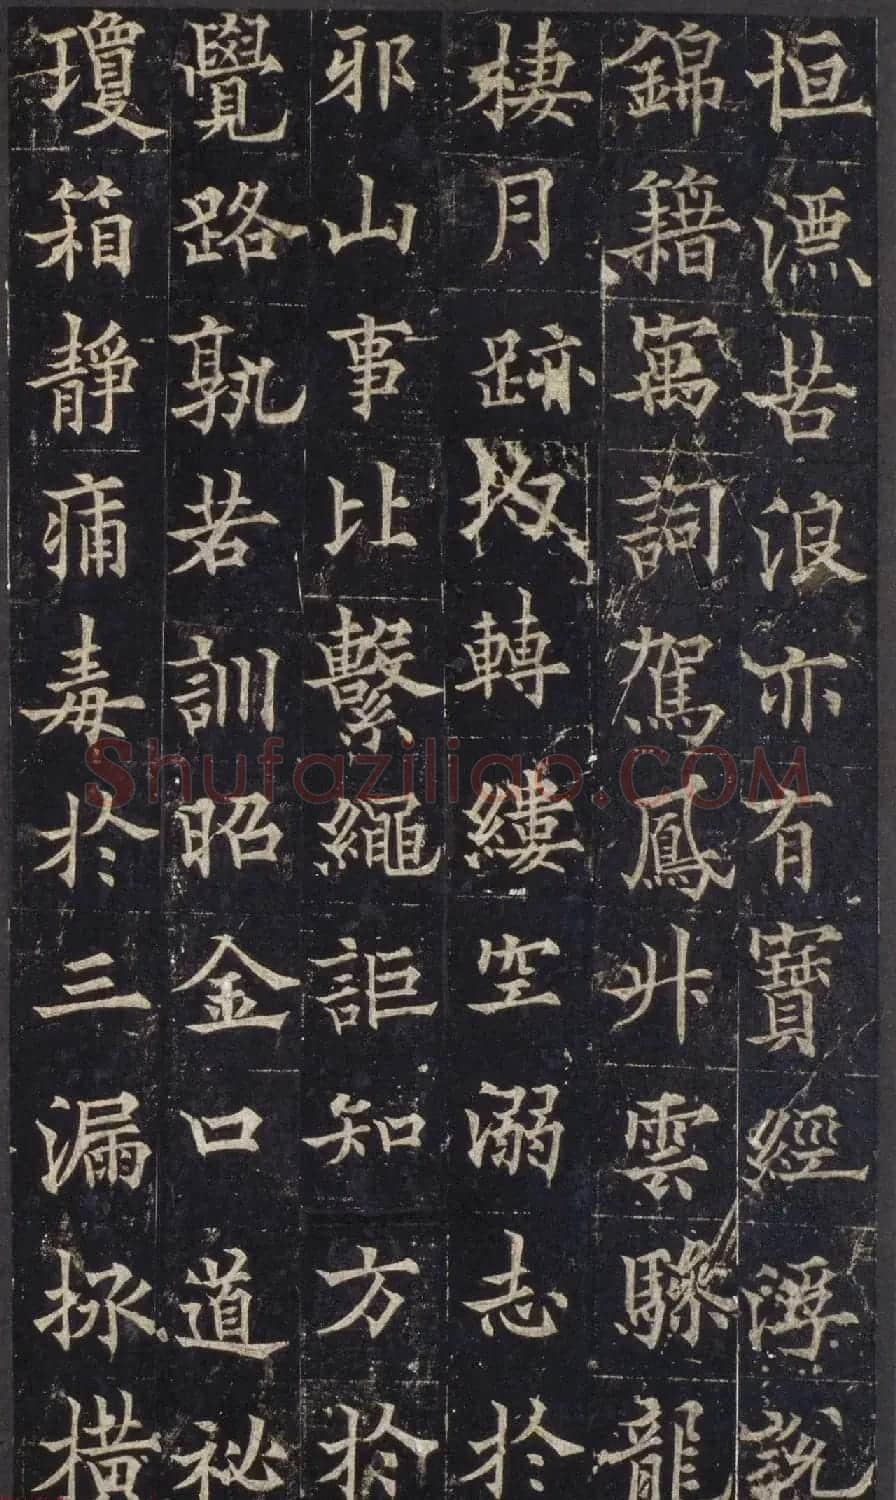 恒漂苦浪亦有寶經浮說
錦籍寓詞駕鳳升雲驂龍
棲月跡均轉縷空溺志於
邪山事比繫繩詎知方於
覺路孰若訓昭金口道祕
瓊箱靜痡毒於三漏拯橫
Shufaziliao.COM